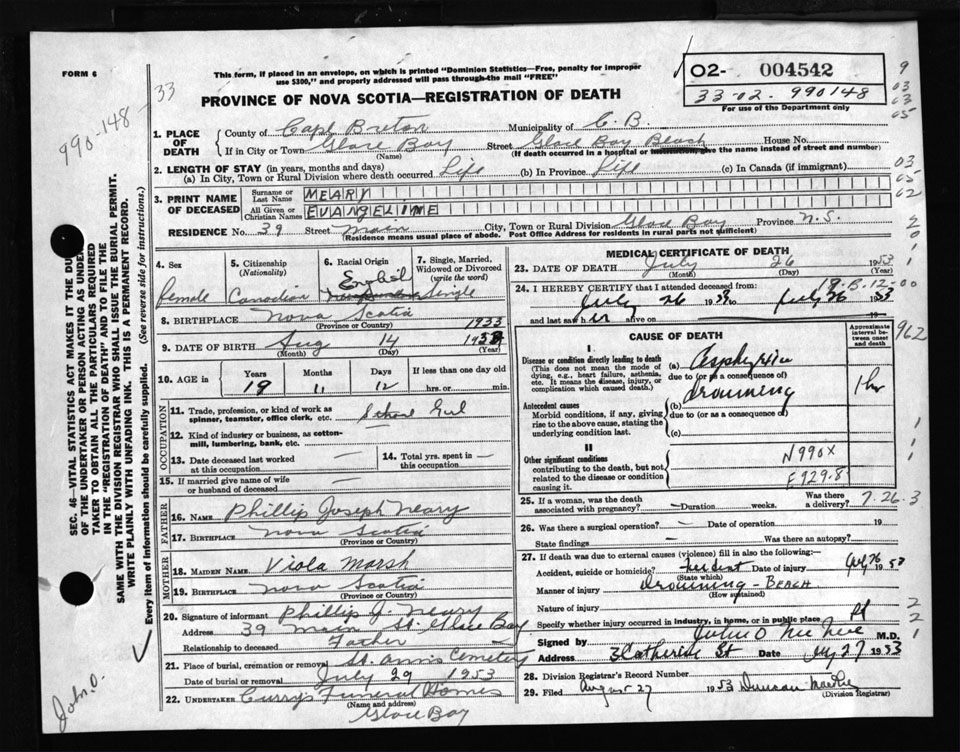 FORM 6
This form, if placed in an envelope, on which is printed "Dominion Statistics—Free, penalty for improper
use $300," and properly addressed will pass through the mail "FREE"
PROVINCE OF NOVA SCOTIA—REGISTRATION OF DEATH
02- 004542
33-02. 990148
For use of the Department only
990-148-33
SEC. 46—VITAL STATISTICS ACT MAKES IT THE DUTY
OF THE UNDERTAKER OR PERSON ACTING AS UNDER-
TAKER TO OBTAIN ALL THE PARTICULARS REQUIRED
IN THE "REGISTRATION OF DEATH" AND TO FILE THE
SAME WITH THE DIVISION REGISTRAR WHO SHALL ISSUE THE BURIAL PERMIT.
WRITE PLAINLY WITH UNFADING INK. THIS IS A PERMANENT RECORD.
Every item of information should be carefully supplied. (See reverse side for instructions.)
John O.
1. PLACE OF DEATH
County of Cape Breton Municipality of C. B.
If in City or Town Glace Bay Street Glace Bay Beach House No.
(Name) (If death occurred in a hospital or institution, give the name instead of street and number)
2. LENGTH OF STAY (in years, months and days)
(a) In City, Town or Rural Division where death occurred Life (b) In Province Life (c) In Canada (if immigrant)
3. PRINT NAME OF DECEASED
Surname or Last Name NEARY
All Given or Christian Names EVANGELINE
RESIDENCE No. 39 Street Main City, Town or Rural Division Glace Bay Province N.S.
(Residence means usual place of abode. Post Office Address for residents in rural parts not sufficient)
4. Sex female
5. Citizenship (Nationality) Canadian
6. Racial Origin English
7. Single, Married, Widowed or Divorced (write the word) Single
8. BIRTHPLACE Nova Scotia
(Province or Country) 1933
9. DATE OF BIRTH Aug 14
(Month) (Day) (Year)
10. AGE in Years 19 Months 11 Days 12 If less than one day old hrs. or min.
OCCUPATION
11. Trade, profession, or kind of work as
spinner, teamster, office clerk, etc. School Girl
12. Kind of industry or business, as cotton-
mill, lumbering, bank, etc. —
13. Date deceased last worked
at this occupation —
14. Total yrs. spent in
this occupation —
15. If married give name of wife
or husband of deceased —
FATHER
16. NAME Phillip Joseph Neary
17. BIRTHPLACE Nova Scotia
(Province or Country)
MOTHER
18. MAIDEN NAME Viola Marsh
19. BIRTHPLACE Nova Scotia
(Province or Country)
20. Signature of informant Phillip J. Neary
Address 39 Main St. Glace Bay
Relationship to deceased Father
21. Place of burial, cremation or removal St. Anns Cemetery
Date of burial or removal July 29 1953
22. UNDERTAKER Curry's Funeral Homes
(Name and address)
Glace Bay
MEDICAL CERTIFICATE OF DEATH
23. DATE OF DEATH July 26 1953
(Month) (Day) (Year)
24. I HEREBY CERTIFY that I attended deceased from 18-B-12-00
July 26 1953 to July 26 1953
and last saw her alive on 19
CAUSE OF DEATH
Approximate interval between onset and death
962
I
Disease or condition directly leading to death
(This does not mean the mode of
dying, e.g., heart failure, asthenia,
etc. It means the disease, injury, or
complication which caused death.)
(a) Asphyxia
due to (or as a consequence of)
Antecedent causes
Morbid conditions, if any, giving
rise to the above cause, stating the
underlying condition last.
(b) drowning 1 hr
due to (or as a consequence of)
(c)
II
Other significant conditions
contributing to the death, but not
related to the disease or condition
causing it.
N990X
E929.8
25. If a woman, was the death
associated with pregnancy? — Duration weeks. Was there a delivery? 7.26.3
26. Was there a surgical operation? — Date of operation 19
State findings — Was there an autopsy?
27. If death was due to external causes (violence) fill in also the following:—
Accident, suicide or homicide? Accident Date of injury July 26 1953
(State which)
Manner of injury Drowning - BEACH
(How sustained)
Nature of injury
Specify whether injury occurred in industry, in home, or in public place. Pl
Signed by M.D.
Address 3 Catherine St Date July 27 1953
28. Division Registrar's Record Number
29. Filed August 27 1953 Duncan
(Division Registrar)
9
03
03
05
03
05
02
2
0
1
1
1
1
2
2
1